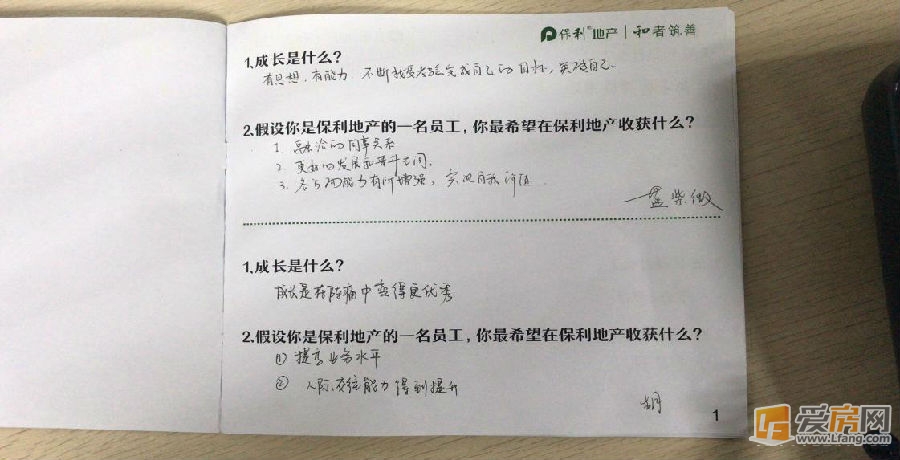 保利地产 | 和者筑善
1.成长是什么?
有思想,有能力 不断接受考验完成自己的目标,突破自己.
2.假设你是保利地产的一名员工,你最希望在保利地产收获什么?
1. 融洽的同事关系
2. 更好的发展和晋升空间.
3. 各方面能力有所增强,实现自我价值.
1.成长是什么?
成长是在阵痛中变得更优秀
2.假设你是保利地产的一名员工,你最希望在保利地产收获什么?
① 提高业务水平
② 人际交往能力得到提升
胡
1
爱房网
www.Lfang.com